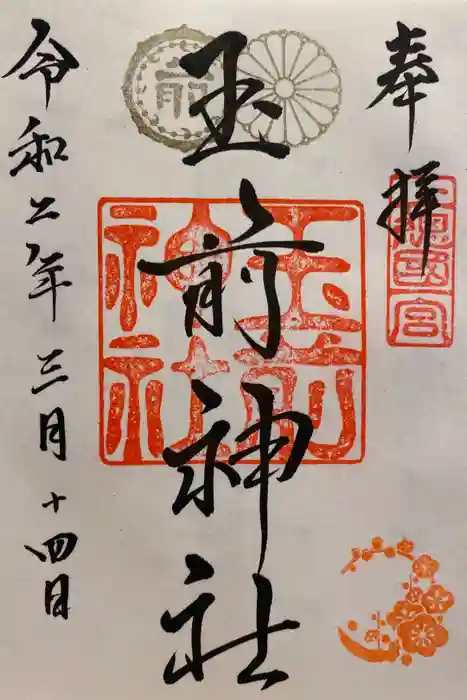 奉拝
上総国一宮
玉前神社
玉前神社
前
令和二年三月十四日